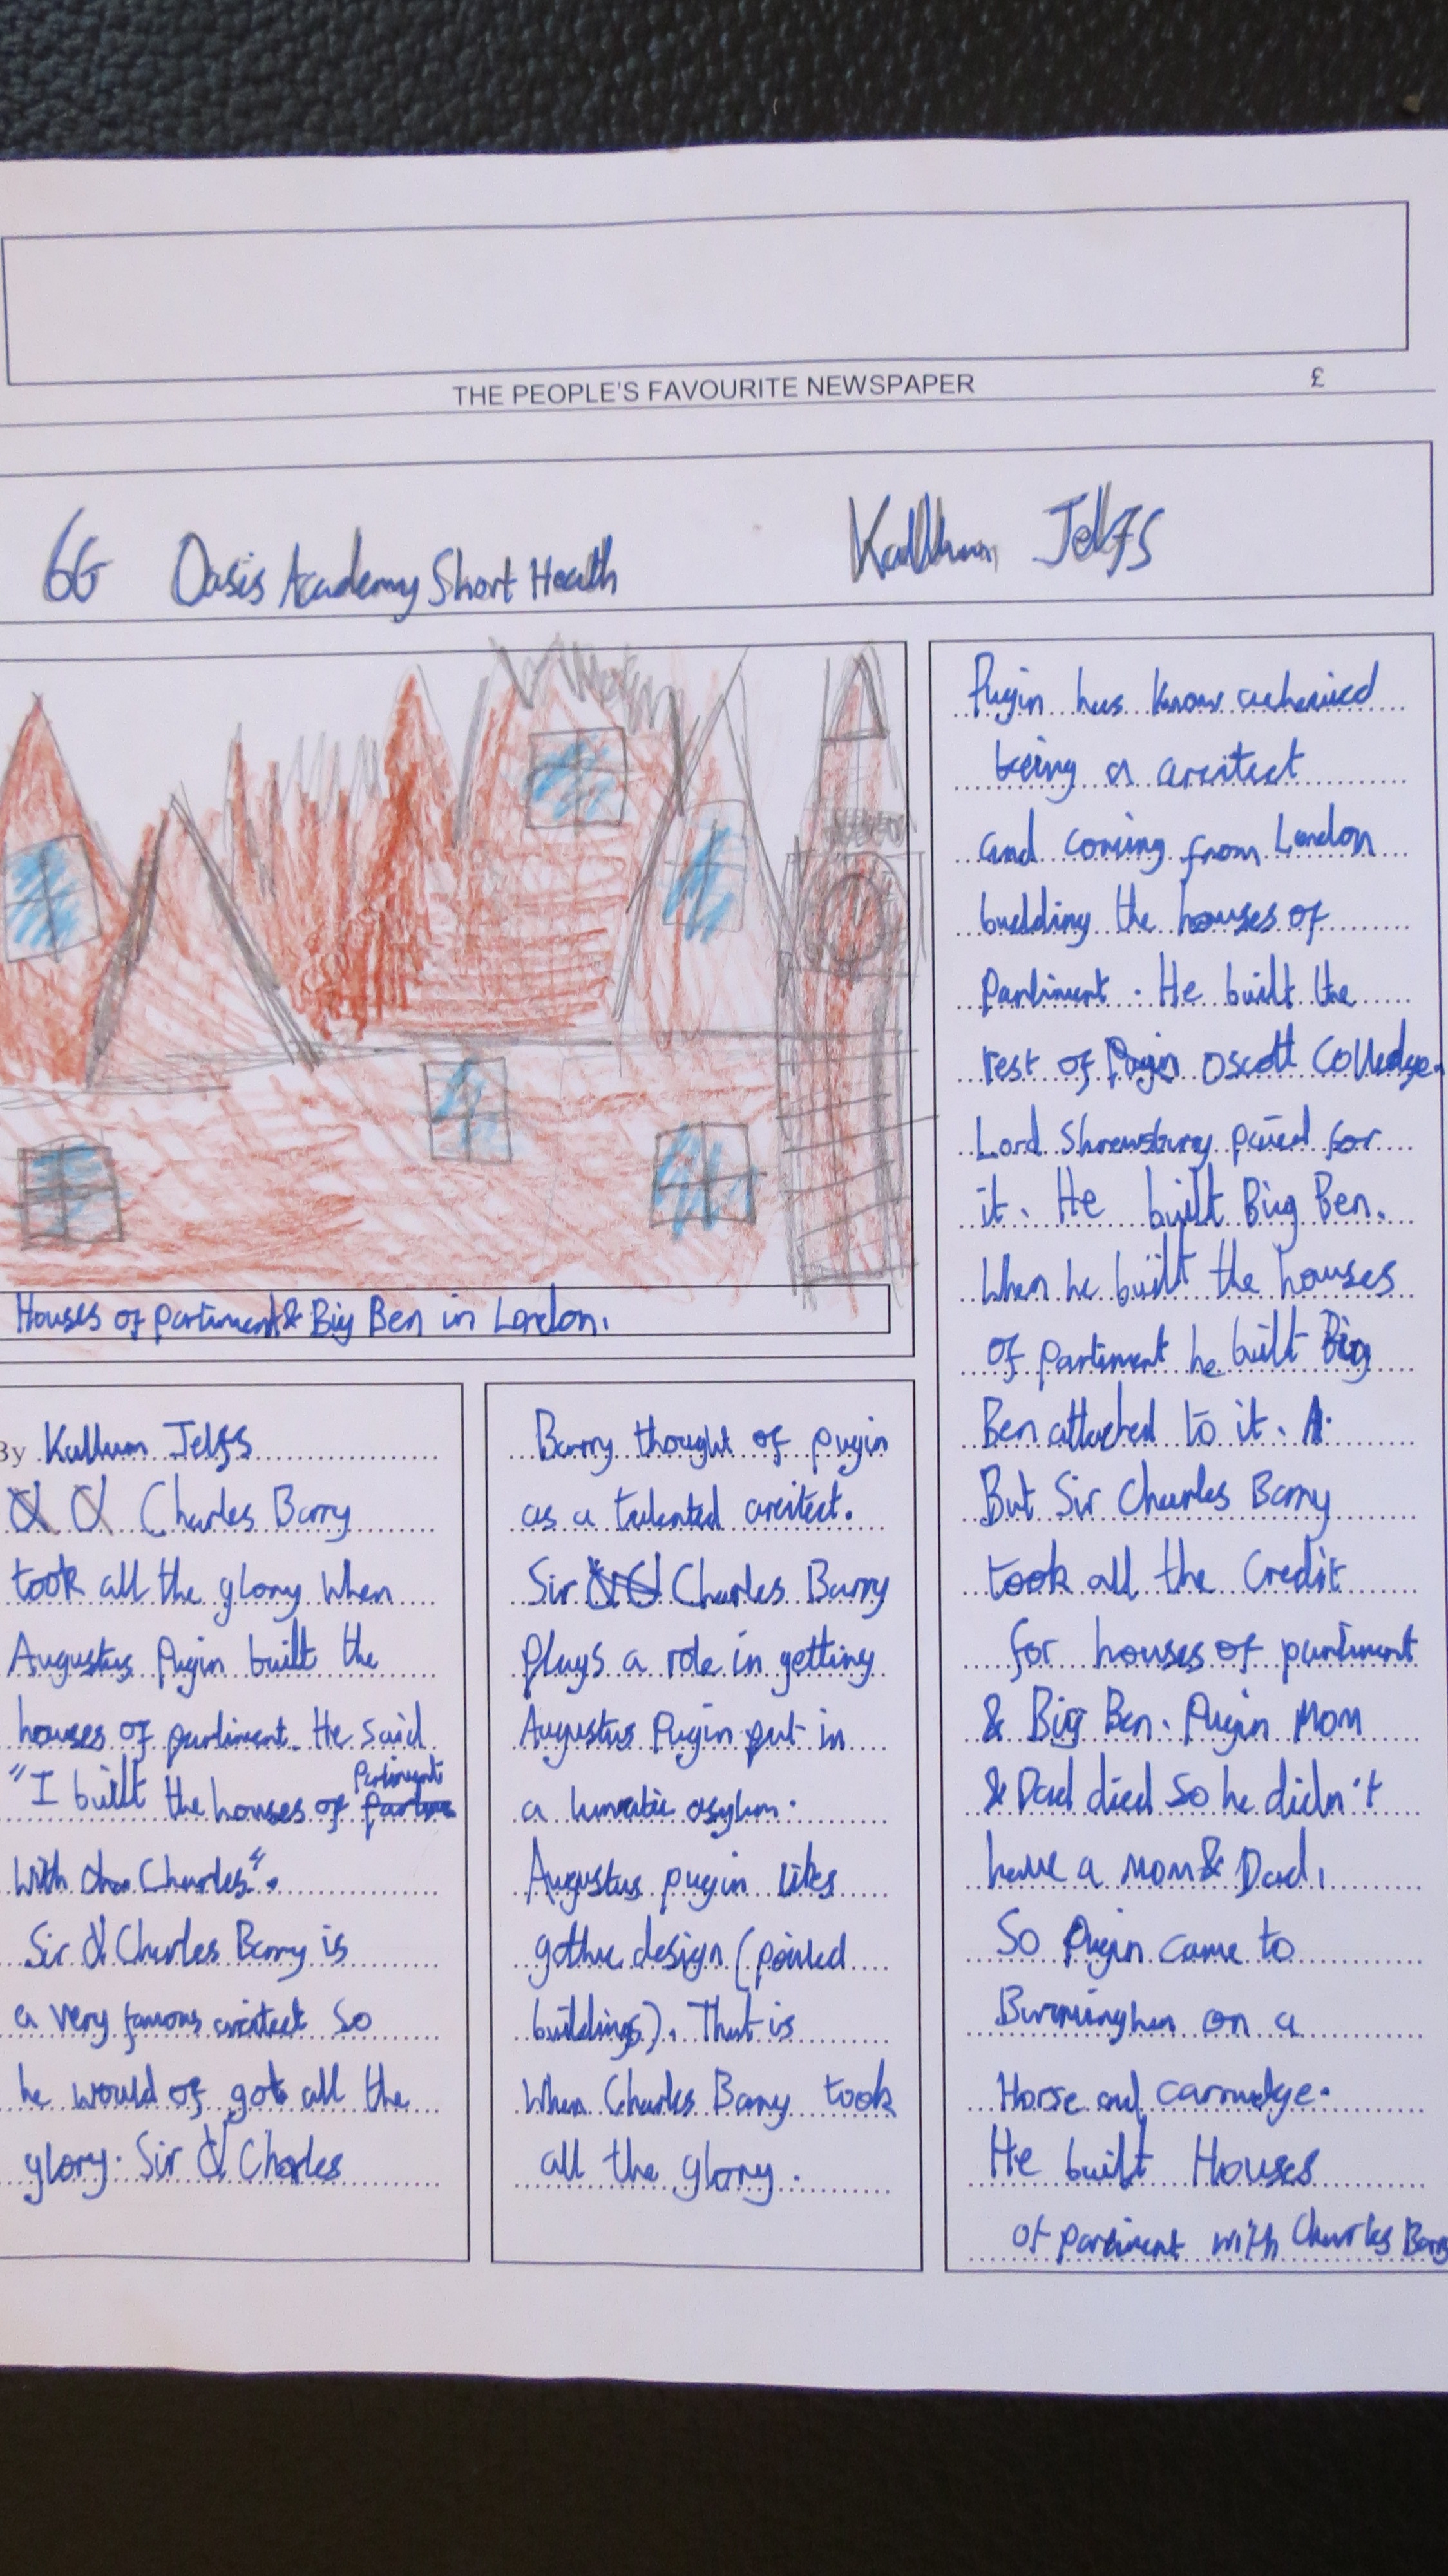 THE PEOPLE'S FAVOURITE NEWSPAPER £
6G Oasis Academy Short Heath Kallum Jelfs
Houses of parliment & Big Ben in London.
By Kallum Jelfs
Charles Barry
took all the glory when
Augustus Pugin built the
houses of parliment. He said
"I built the houses of Parliment
with Charles".
Sir Charles Barry is
a very famous arcitect so
he would of got all the
glory. Sir Charles
Barry thought of pugin
as a talented arcitect.
Sir Charles Barry
plays a role in getting
Augustus Pugin put in
a lunatic asylum.
Augustus pugin likes
gothic design (pointed
buildings). That is
When Charles Barry took
all the glory.
Pugin has know
being a arcitect
and coming from London
building the houses of
Parliment. He built the
rest of Pugin Oscott Colledge.
Lord Shrewsbury paied for
it. He built Big Ben.
When he built the houses
of parliment he built Big
Ben attached to it.
But Sir Charles Barry
took all the Credit
for houses of parliment
& Big Ben. Pugin Mom
& Dad died so he didn't
have a mom & Dad.
So Pugin came to
Burminghem on a
Horse and carrudge.
He built Houses
of parliment with Charles Barry